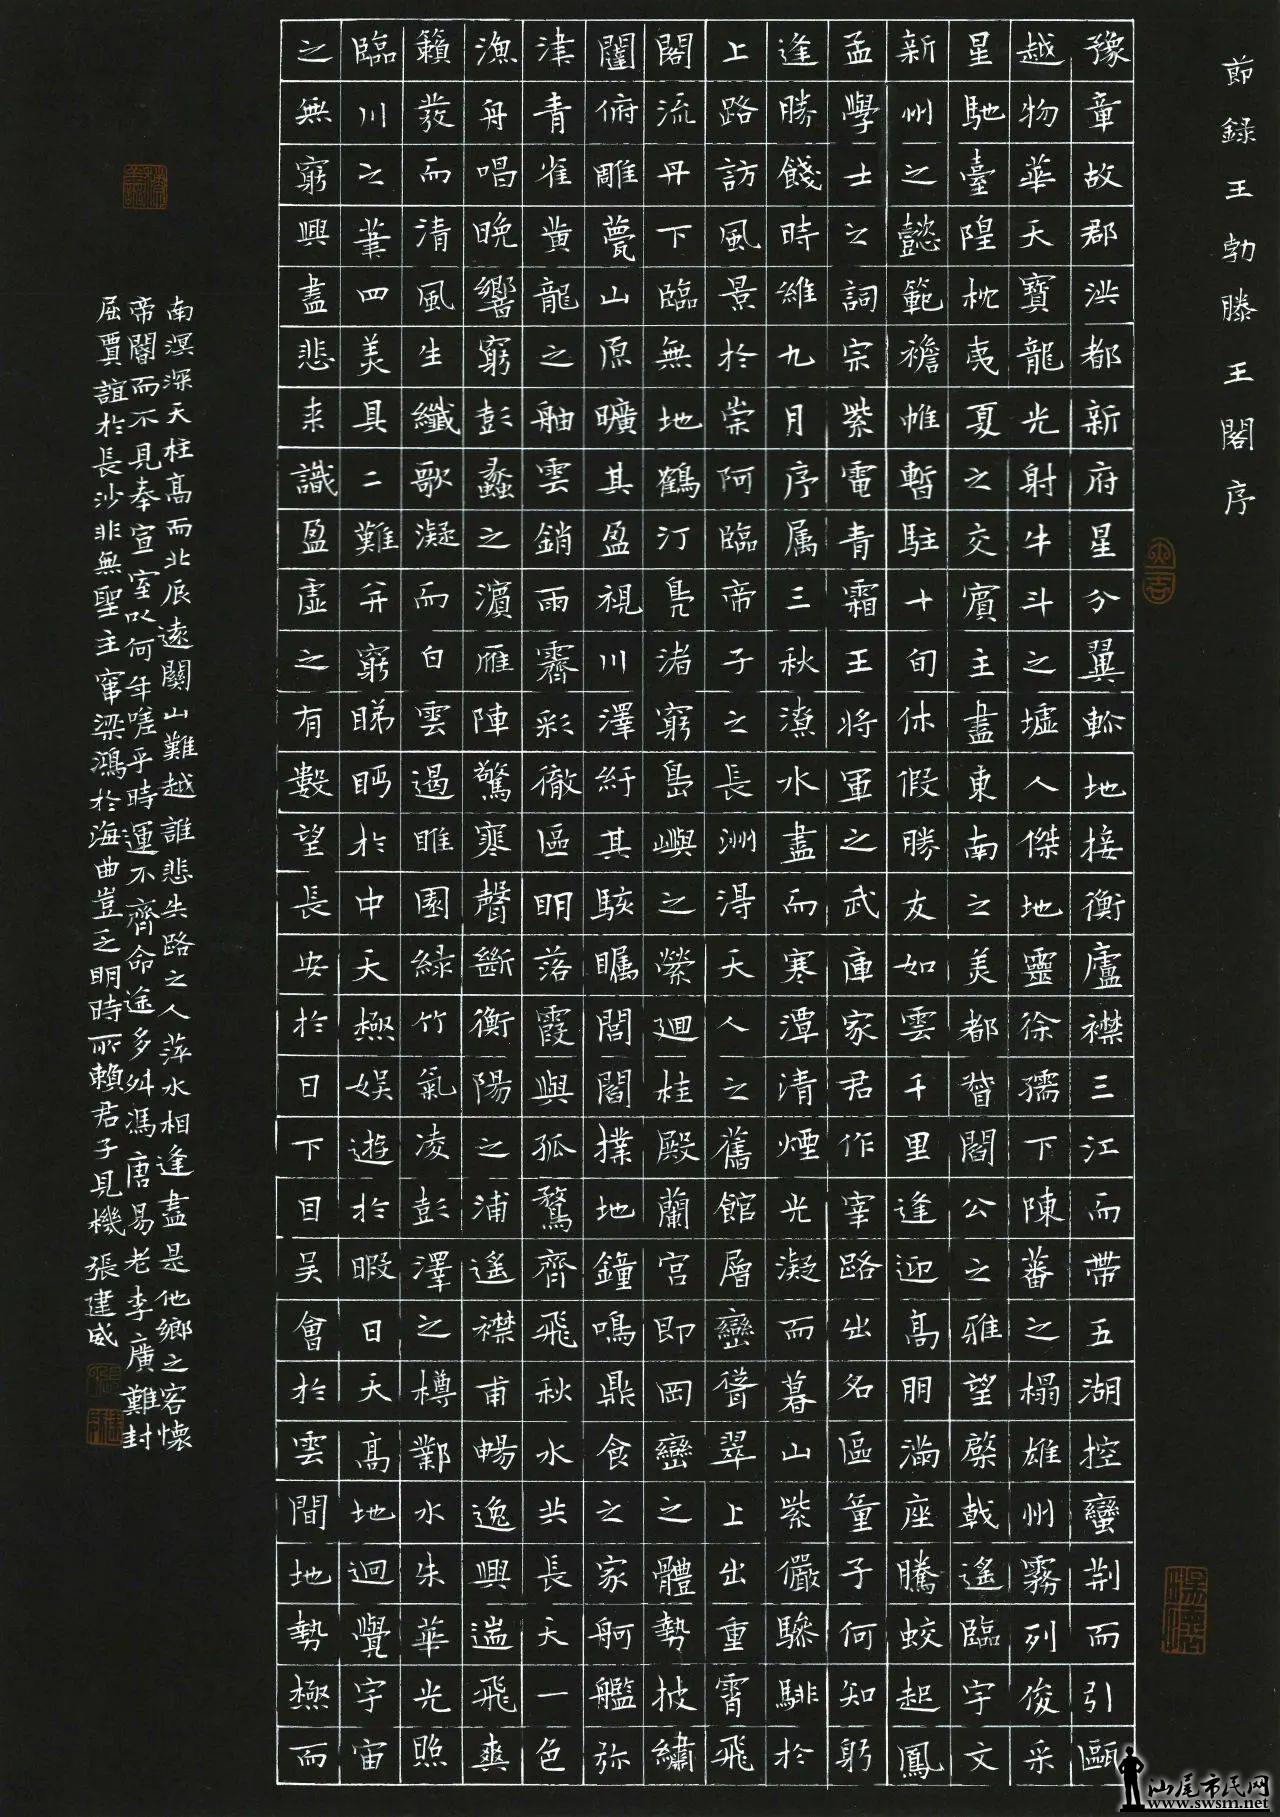 節錄王勃滕王閣序
豫章故郡洪都新府星分翼軫地接衡廬襟三江而帶五湖控蠻荊而引甌
越物華天寶龍光射牛斗之墟人傑地靈徐孺下陳蕃之榻雄州霧列俊采
星馳臺隍枕夷夏之交賓主盡東南之美都督閻公之雅望棨戟遙臨宇文
新州之懿範襜帷暫駐十旬休假勝友如雲千里逢迎高朋滿座騰蛟起鳳
孟學士之詞宗紫電青霜王將軍之武庫家君作宰路出名區童子何知躬
逢勝餞時維九月序属三秋潦水盡而寒潭清煙光凝而暮山紫儼驂騑於
上路訪風景於崇阿臨帝子之長洲得天人之舊館層巒聳翠上出重霄飛
閣流丹下臨無地鶴汀鳧渚窮島嶼之縈迴桂殿蘭宮即岡巒之體勢披繡
闥俯雕甍山原曠其盈視川澤紆其駭矚閭閻撲地鐘鳴鼎食之家舸艦弥
津青雀黃龍之舳雲銷雨霽彩徹區明落霞與孤鶩齊飛秋水共長天一色
漁舟唱晚響窮彭蠡之濱雁陣驚寒聲斷衡陽之浦遙襟甫暢逸興遄飛爽
籟發而清風生纖歌凝而白雲遏睢園綠竹氣凌彭澤之樽鄴水朱華光照
臨川之筆四美具二難并窮睇眄於中天極娛遊於暇日天高地迥覺宇宙
之無窮興盡悲来識盈虛之有數望長安於日下目吳會於雲間地勢極而
南溟深天柱高而北辰遠關山難越誰悲失路之人萍水相逢盡是他鄉之客懷
帝閽而不見奉宣室以何年嗟乎時運不齊命途多舛馮唐易老李廣難封
屈賈誼於長沙非無聖主竄梁鴻於海曲豈乏明時所賴君子見機張建威
汕尾市民网
www.swsm.net